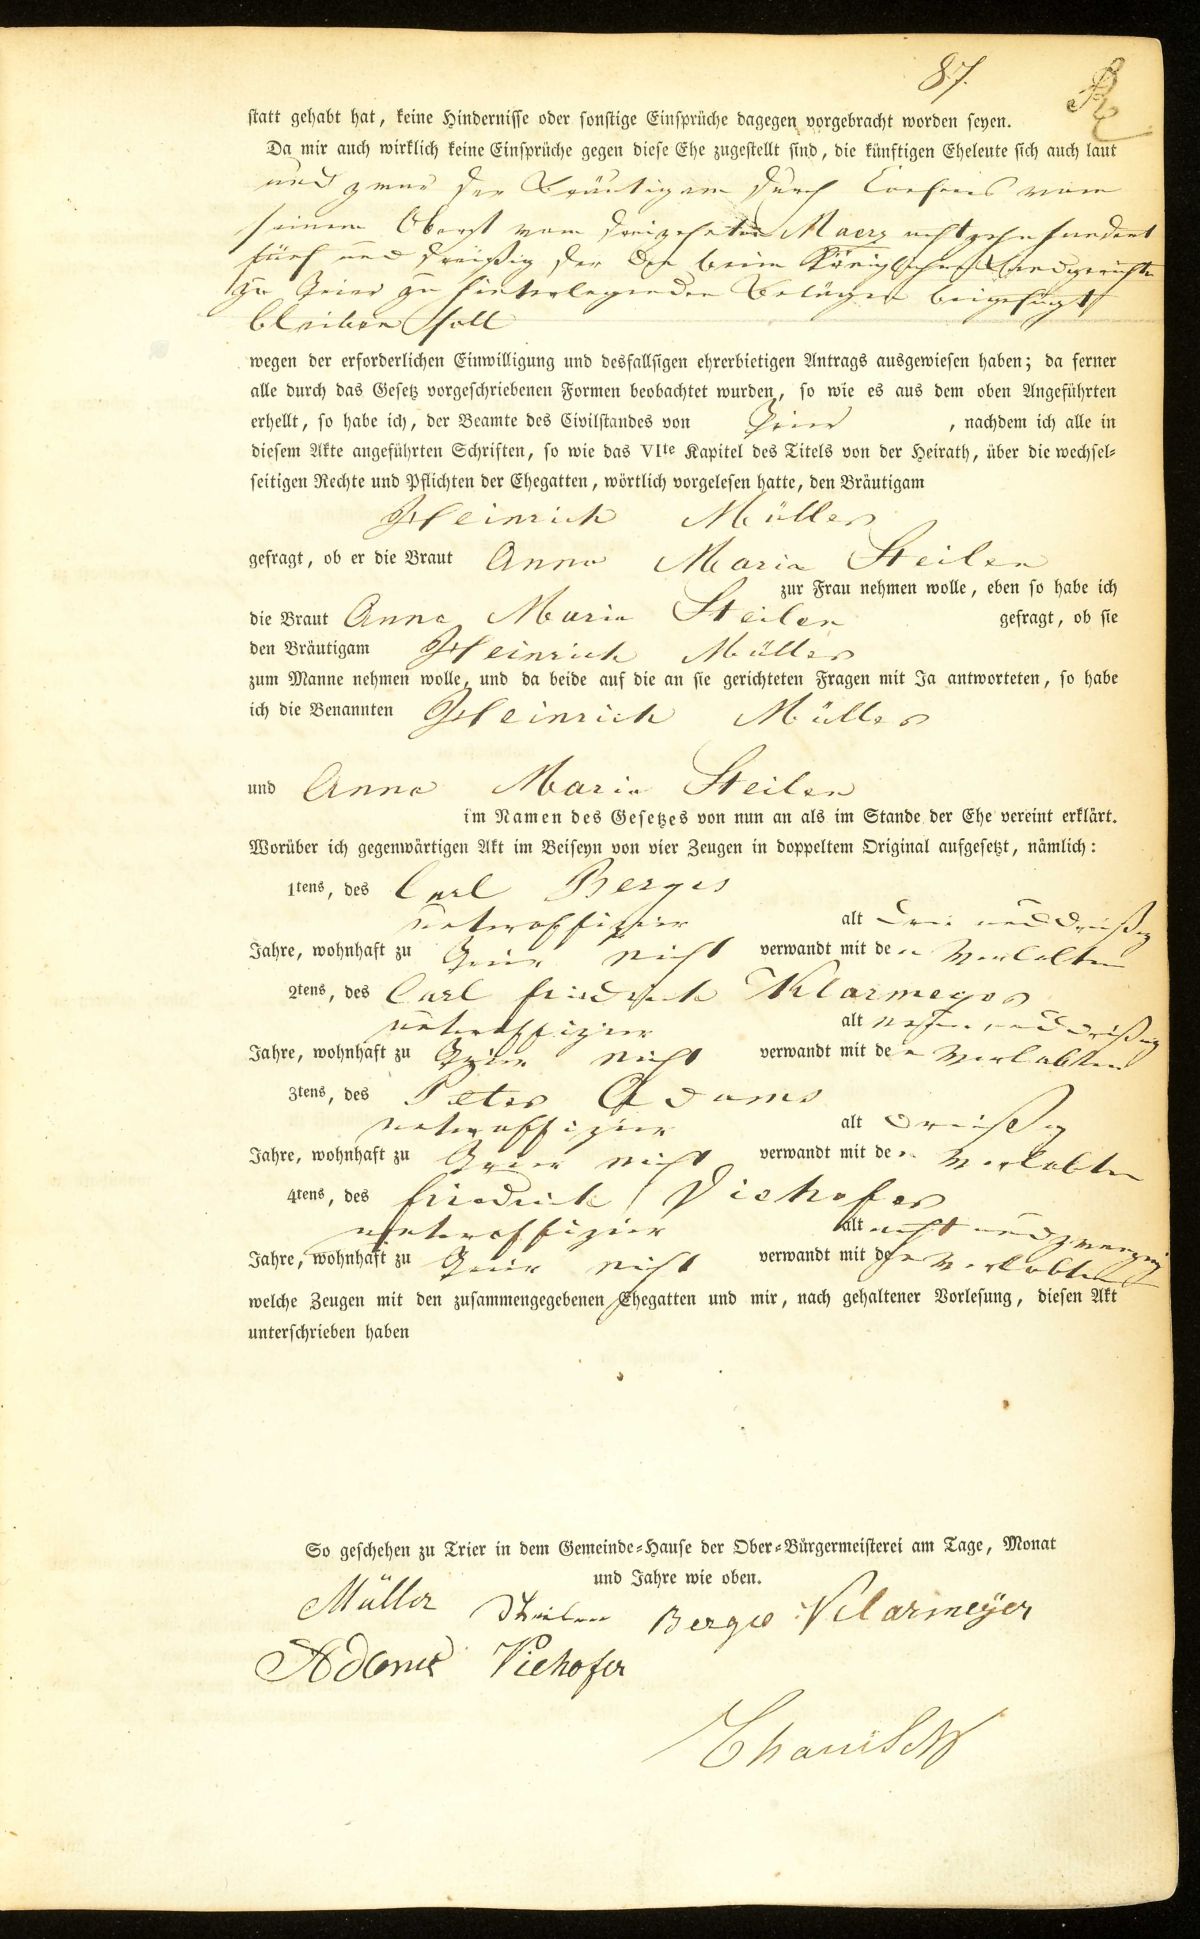 87.
statt gehabt hat, keine Hindernisse oder sonstige Einsprüche dagegen vorgebracht worden seyen.
Da mir auch wirklich keine Einsprüche gegen diese Ehe zugestellt sind, die künftigen Eheleute sich auch laut
und zwar der Bräutigam durch Consens von
seinem Oberst vom dreizehnten Maerz achtzehnhundert
fünf und dreißig der den beim Königlichen Landgerichte
zu Trier zu hinterlegenden Belägen beigefügt
bleiben soll
wegen der erforderlichen Einwilligung und desfallsigen ehrerbietigen Antrags ausgewiesen haben; da ferner
alle durch das Gesetz vorgeschriebenen Formen beobachtet wurden, so wie es aus dem oben Angeführten
erhellt, so habe ich, der Beamte des Civilstandes von Trier , nachdem ich alle in
diesem Akte angeführten Schriften, so wie das VIte Kapitel des Titels von der Heirath, über die wechsel-
seitigen Rechte und Pflichten der Ehegatten, wörtlich vorgelesen hatte, den Bräutigam
Heinrich Müller
gefragt, ob er die Braut Anna Maria Steilen
zur Frau nehmen wolle, eben so habe ich
die Braut Anna Maria Steilen gefragt, ob sie
den Bräutigam Heinrich Müller
zum Manne nehmen wolle, und da beide auf die an sie gerichteten Fragen mit Ja antworteten, so habe
ich die Benannten Heinrich Müller
und Anna Maria Steilen
im Namen des Gesetzes von nun an als im Stande der Ehe vereint erklärt.
Worüber ich gegenwärtigen Akt im Beiseyn von vier Zeugen in doppeltem Original aufgesetzt, nämlich:
1tens, des Carl Berges
unteroffizier alt drei und dreißig
Jahre, wohnhaft zu Trier nicht verwandt mit den Verlobten
2tens, des Carl Friedrich Klarmeyer
unteroffizier alt und dreißig
Jahre, wohnhaft zu Trier nicht verwandt mit den Verlobten
3tens, des Peter Adams
unteroffizier alt dreißig
Jahre, wohnhaft zu Trier nicht verwandt mit den Verlobten
4tens, des Friedrich Viehofer
unteroffizier alt acht und zwanzig
Jahre, wohnhaft zu Trier nicht verwandt mit den Verlobten
welche Zeugen mit den zusammengegebenen Ehegatten und mir, nach gehaltener Vorlesung, diesen Akt
unterschrieben haben
So geschehen zu Trier in dem Gemeinde-Hause der Ober-Bürgermeisterei am Tage, Monat
und Jahre wie oben.
Müller Steilen Berges Klarmeÿer
Adams Viehofer